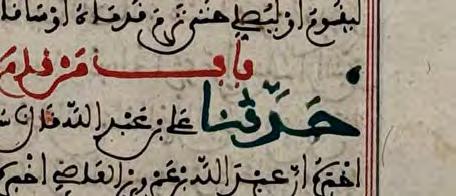 ليقوم او ليصلي حتى ترم قدماه او ساقا
باب من نام
حدثنا علي بن عبد الله قال
اخبره ان عبد الله بن عمرو بن العاصي اخبره